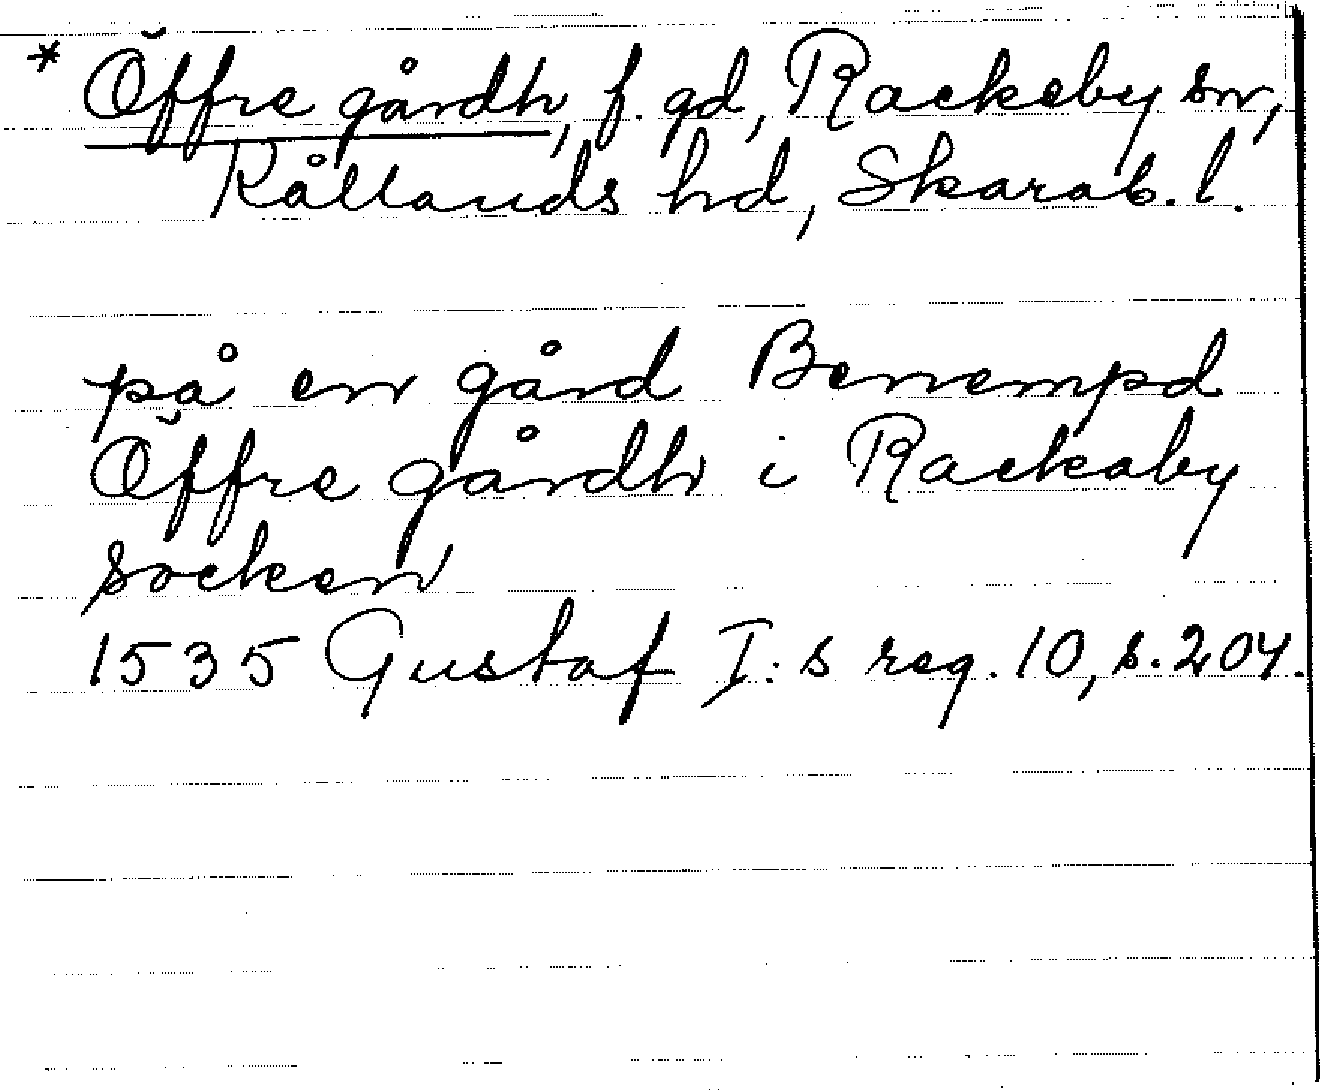 * Öffre gårdh, f. gd, Rackeby sn,
Kållands hd, Skarab. l.
på en gård Benempd
Öffre gårdh i Rackaby
socken
1535 Gustaf I:s reg. 10, s. 204.